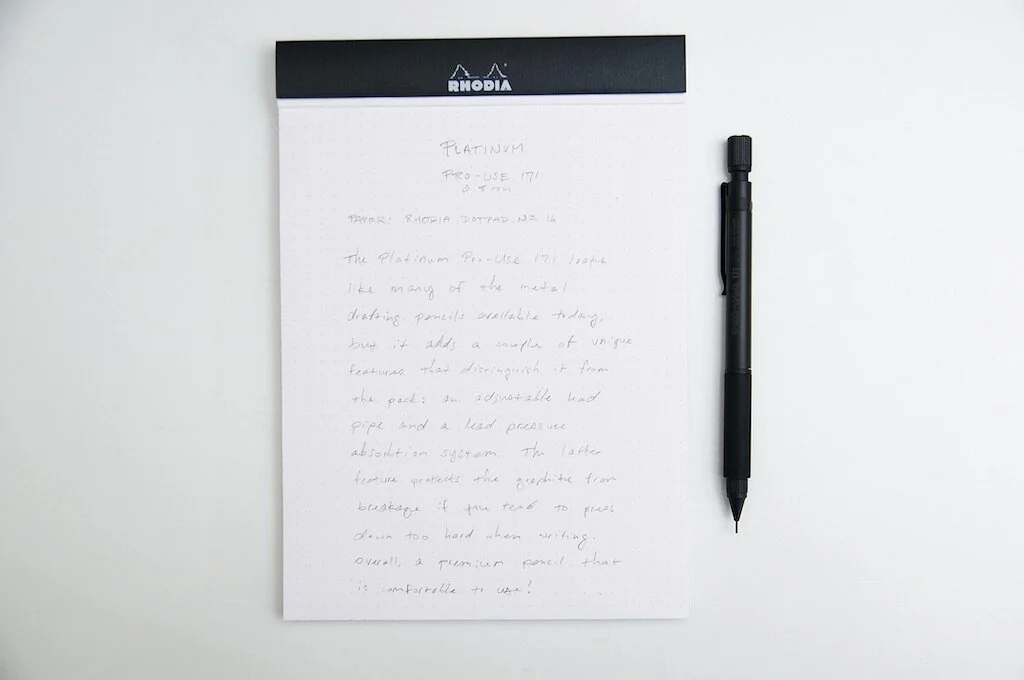 RHODIA
PLATINUM
PRO-USE 171
0.5mm
PAPER: RHODIA DOTPAD Nº 16
The Platinum Pro-Use 171 looks
like many of the metal
drafting pencils available today,
but it adds a couple of unique
features that distinguish it from
the pack: an adjustable lead
pipe and a lead pressure
absorbtion system. The latter
feature protects the graphite from
breakage if you tend to press
down too hard when writing.
Overall, a premium pencil that
is comfortable to use!